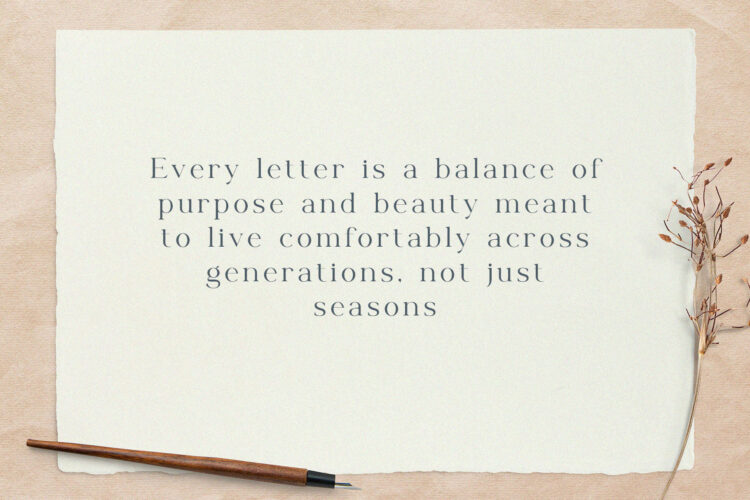 Every letter is a balance of
purpose and beauty meant
to live comfortably across
generations, not just
seasons